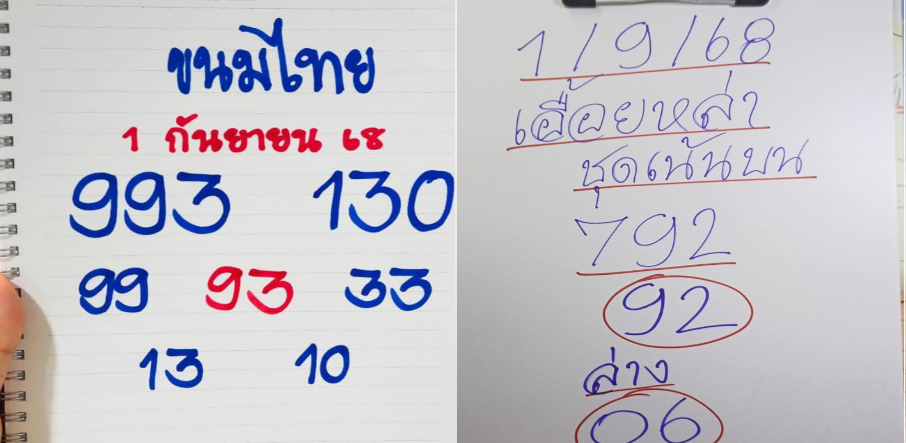 ขนมไทย
1 กันยายน 68
993 130
99 93 33
13 10
1/9/68
เอื้อยหล่า
ชุดเน้นบน
792
92
ล่าง
06